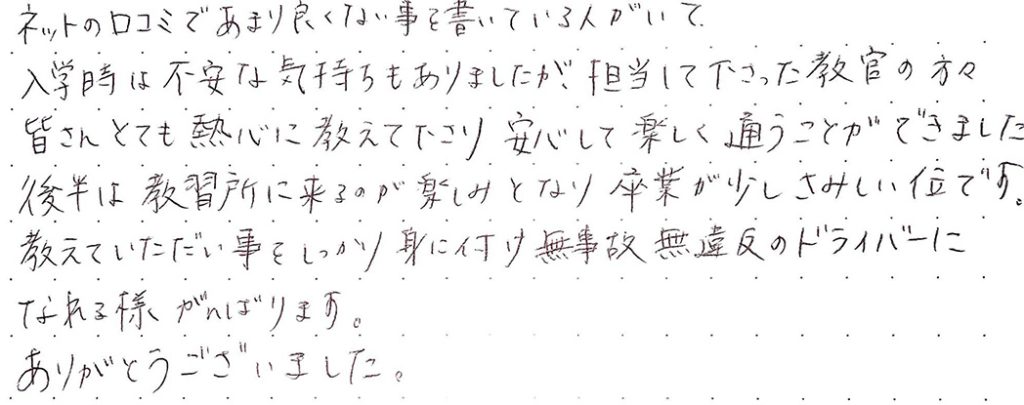 ネットの口コミであまり良くない事を書いている人がいて
入学時は不安な気持ちもありましたが、担当して下さった教官の方々
皆さんとても熱心に教えて下さり 安心して楽しく通うことができました
後半は教習所に来るのが楽しみとなり 卒業が少しさみしい位です。
教えていただだい事をしっかり身に付け無事故無違反のドライバーに
なれる様がんばります。
ありがとうございました。